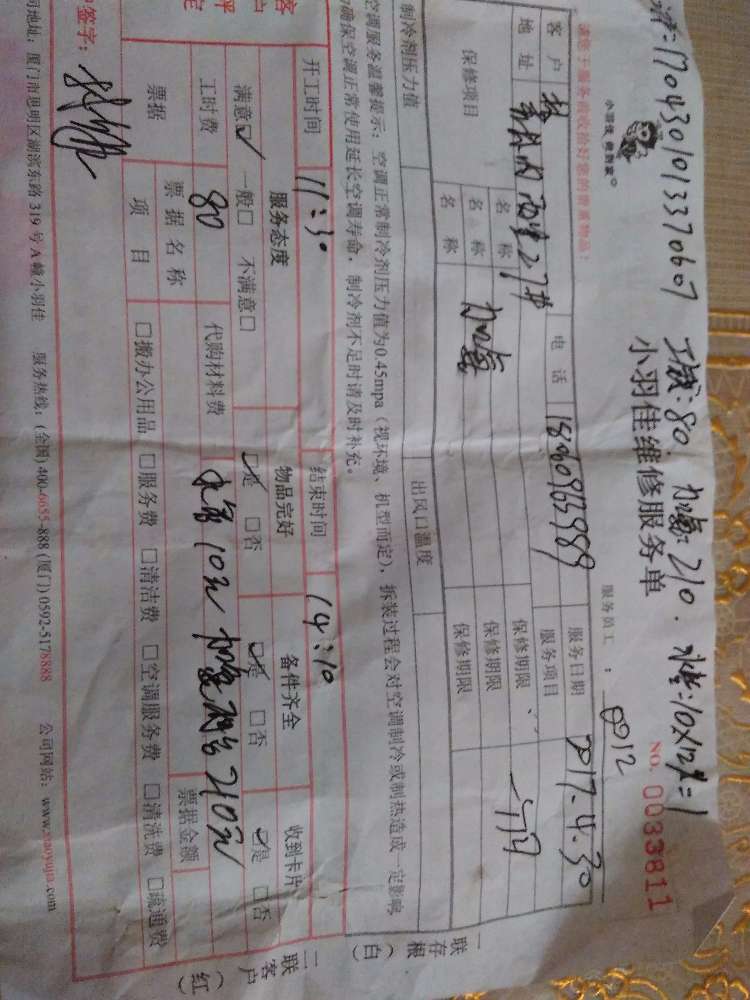 :170430101337060 7 工费:80. 加氟:210. 水管:10X12米=1
小羽佳 使到家
小羽佳维修服务单
服务员工:
0912
NO. 0033811
请您于服务前收拾好您的贵重物品!
客户 林 电话 服务日期 2017.4.30
地址 27# 服务项目
保修项目 名称 加氟 保修期限 一个月
名称 保修期限
名称 保修期限
制冷剂压力值 出风口温度
空调服务温馨提示:空调正常制冷剂压力值为0.45mpa(视环境、机型而定),拆装过程会对空调制冷或制热造成一定影响
为确保空调正常使用延长空调寿命,制冷剂不足时请及时补充。
开工时间 11:30 结束时间 14:10
服务态度 物品完好 备件齐全 收到卡片
满意☑ 一般□ 不满意□ ☑是 □否 ☑是 □否 ☑是 □否
工时费 80 代购材料费 水管10米 加氟 210元
票据 票据名称 票据金额
项目 □搬办公用品 □服务费 □清洁费 □空调服务费 □清洗费 □疏通费
签字:
司地址:厦门市思明区湖滨东路319号A幢小羽佳 服务热线:(全国) 400-6655-888 (厦门) 0592-5178888 公司网站:www.xiaoyujia.com
一联存根(白)
二联客户(红)